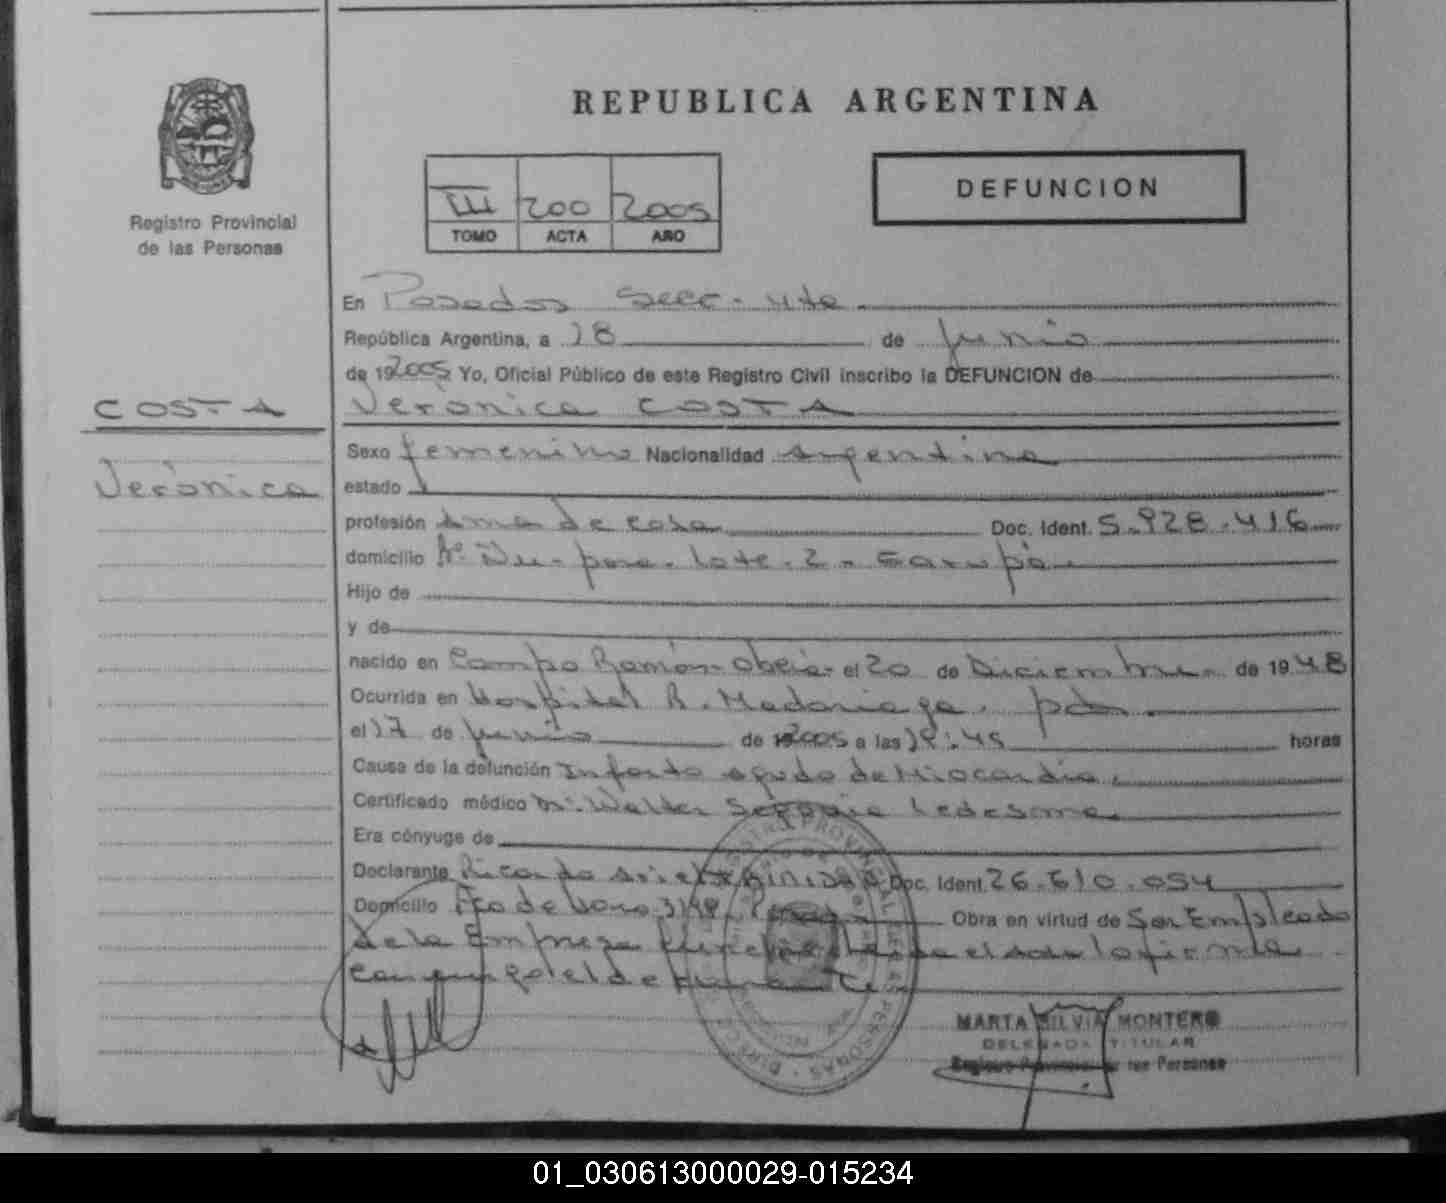 REPUBLICA ARGENTINA
DEFUNCION
III 200 2005
TOMO ACTA AÑO
Registro Provincial
de las Personas
En Posadas Secc. 4ta
República Argentina, a 18 de Junio
de 19 2005 Yo, Oficial Público de este Registro Civil inscribo la DEFUNCION de
COSTA
Verónica COSTA
Verónica
Sexo femenino Nacionalidad Argentina
estado
profesión Ama de casa Doc. Ident. 5.928.416
domicilio Lote. 2 - Garupá
Hijo de
y de
nacido en Campo Ramón Oberá el 20 de Diciembre de 1948
Ocurrida en Hospital R. Madariaga. pdas.
el 17 de junio de 2005 a las 18:45 horas
Causa de la defunción Infarto agudo de Miocardio
Certificado médico Dr. Walter Ledesma
Era cónyuge de
Declarante Ricardo Ariel Doc. Ident. 26.610.054
Domicilio Posadas Obra en virtud de Ser Empleado
de la Empresa la firma
con
MARTA SILVIA MONTERO
DELEGADA TITULAR
Registro Provincial de las Personas
01_030613000029-015234